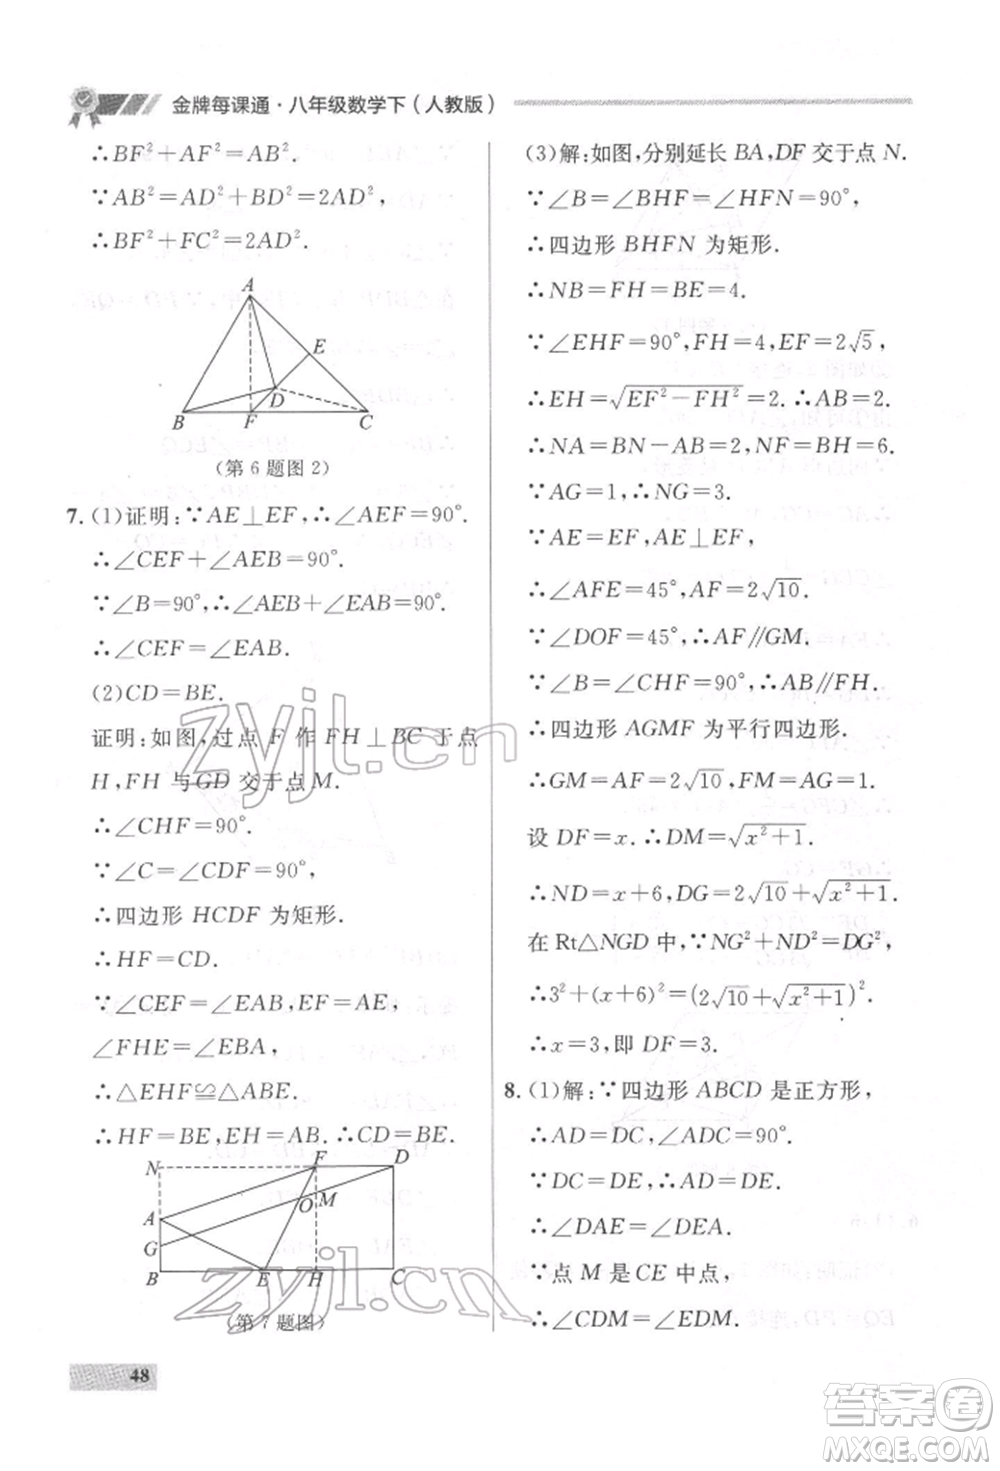 金牌每课通·八年级数学下（人教版）
∴BF²+AF²=AB².
∵AB²=AD²+BD²=2AD²,
∴BF²+FC²=2AD².
A
E
D
B F C
(第6题图2)
7.(1)证明:∵AE⊥EF,∴∠AEF=90°.
∴∠CEF+∠AEB=90°.
∵∠B=90°,∴∠AEB+∠EAB=90°.
∴∠CEF=∠EAB.
(2)CD=BE.
证明:如图,过点 F 作 FH⊥BC 于点
H,FH 与 GD 交于点 M.
∴∠CHF=90°.
∵∠C=∠CDF=90°.
∴四边形 HCDF 为矩形.
∴HF=CD.
∵∠CEF=∠EAB,EF=AE,
∠FHE=∠EBA,
∴△EHF≌△ABE.
∴HF=BE,EH=AB.∴CD=BE.
N F D
O M
A
G
B E H C
(第7题图)
(3)解:如图,分别延长 BA,DF 交于点 N.
∵∠B=∠BHF=∠HFN=90°,
∴四边形 BHFN 为矩形.
∴NB=FH=BE=4.
∵∠EHF=90°,FH=4,EF=2√5,
∴EH=√(EF²-FH²)=2.∴AB=2.
∴NA=BN-AB=2,NF=BH=6.
∵AG=1,∴NG=3.
∵AE=EF,AE⊥EF,
∴∠AFE=45°,AF=2√10.
∵∠DOF=45°,∴AF∥GM.
∵∠B=∠CHF=90°,∴AB∥FH.
∴四边形 AGMF 为平行四边形.
∴GM=AF=2√10,FM=AG=1.
设 DF=x.∴DM=√(x²+1).
∴ND=x+6,DG=2√10+√(x²+1).
在 Rt△NGD 中,∵NG²+ND²=DG²,
∴3²+(x+6)²=(2√10+√(x²+1))².
∴x=3,即 DF=3.
8.(1)解:∵四边形 ABCD 是正方形,
∴AD=DC,∠ADC=90°.
∵DE=DC,∴AD=DE.
∴∠DAE=∠DEA.
∵点 M 是 CE 中点,
∴∠CDM=∠EDM.
48
zyjl.cn
zyjl.cn
答案圈
MXQE.COM